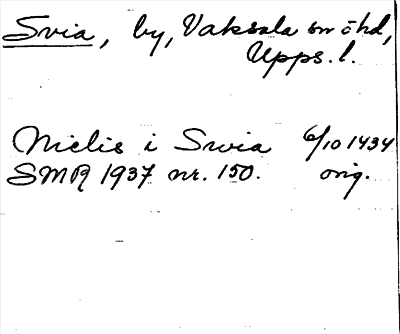 Svia, by, Vaksala sn o hd,
Upps. l.
Nielis i Svia 6/10 1434
SMR 1937 nr. 150. orig.